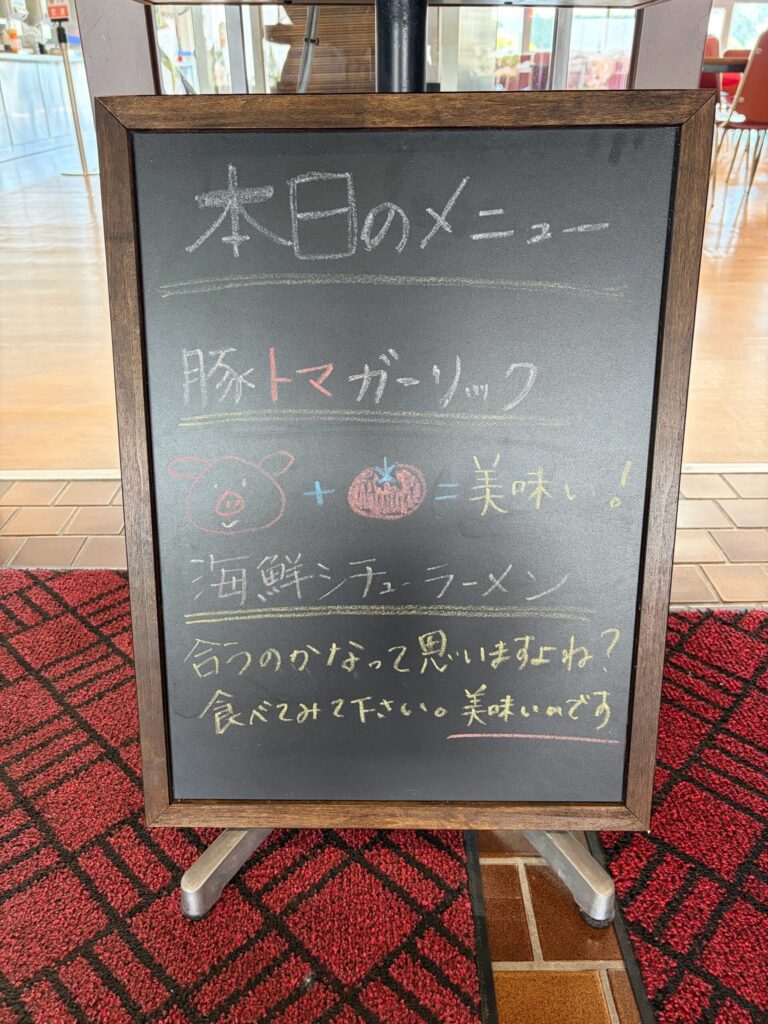 本日のメニュー
豚トマガーリック
+ = 美味い!
海鮮シチューラーメン
合うのかなって思いますよね?
食べてみて下さい。美味いのです